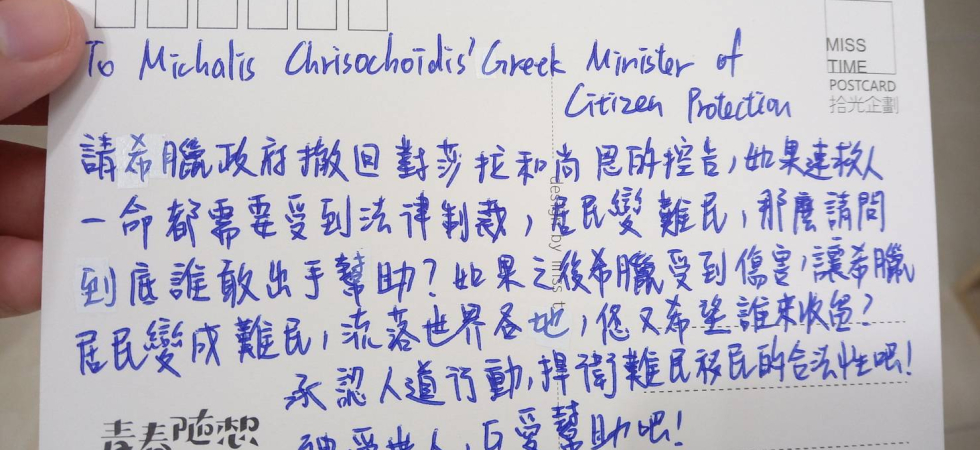 To Michalis Chrisochoidis' Greek Minister of
Citizen Protection
MISS
TIME
POSTCARD
拾光企劃
請希臘政府撤回對莎拉和尚恩的控告,如果連救人
一命都需要受到法律制裁,居民變難民,那麼請問
到底誰敢出手幫助?如果之後希臘受到傷害,讓希臘
居民變成難民,流落世界各地,您又希望誰來收留?
承認人道行動,捍衛難民移民的合法性吧!
世人,互愛幫助吧!
青春隨想
design by miss t